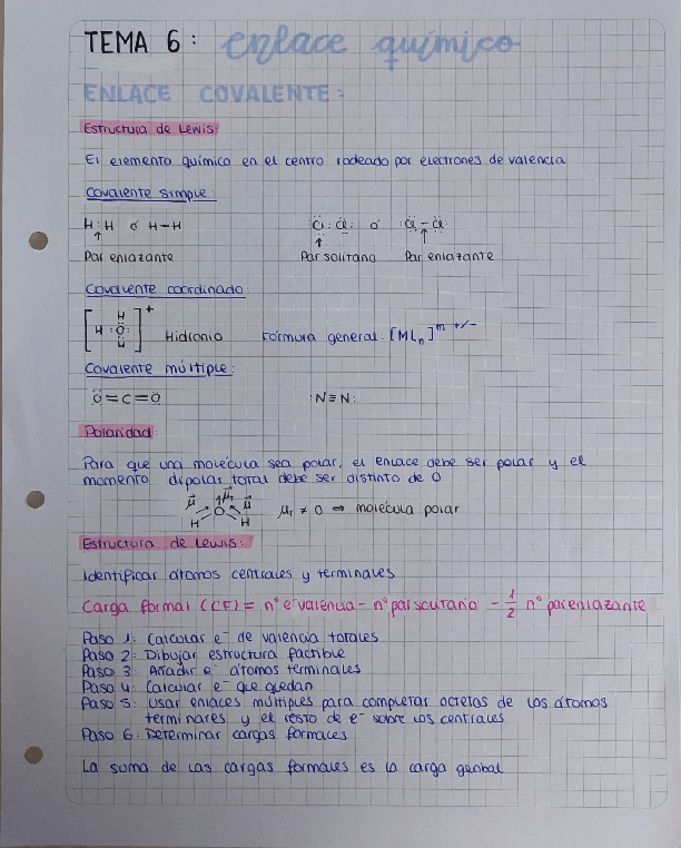 TEMA 6: enlace químico
ENLACE COVALENTE:
Estructura de Lewis:
El elemento químico en el centro rodeado por electrones de valencia
Covalente simple:
H:H ó H-H :Cl:Cl: ó :Cl-Cl:
Par enlazante Par solitario Par enlazante
Covalente coordinado
[H:O:H H]+ Hidronio Fórmula general: [MLn]^m +/-
Covalente múltiple:
O=C=O :N≡N:
Polaridad:
Para que una molécula sea polar, el enlace debe ser polar y el
momento dipolar total debe ser distinto de 0
μ μT μ
H O H μT ≠ 0 ⇒ molécula polar
Estructura de Lewis:
Identificar átomos centrales y terminales
Carga formal (CF) = nº e⁻ valencia - nº par solitario - 1/2 nº par enlazante
Paso 1: Calcular e⁻ de valencia totales
Paso 2: Dibujar estructura factible
Paso 3: Añadir e⁻ átomos terminales
Paso 4: Calcular e⁻ que quedan
Paso 5: Usar enlaces múltiples para completar octetos de los átomos
terminales y el resto de e⁻ sobre los centrales
Paso 6: Determinar cargas formales
La suma de las cargas formales es la carga